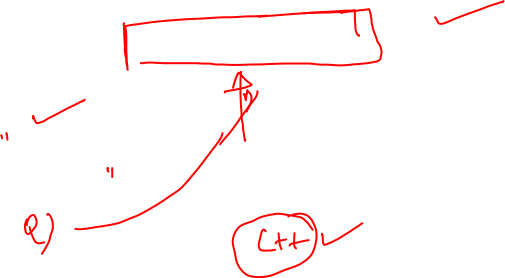 "
"
Q)
C++